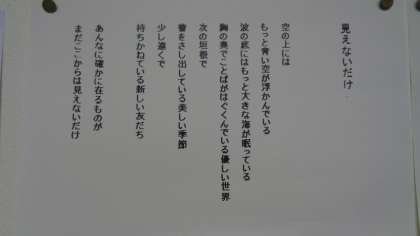 見えないだけ
空の上には
もっと青い空が浮かんでいる
波の底にはもっと大きな海が眠っている
胸の奥でことばがはぐくんでいる優しい世界
次の垣根で
蕾をさし出している美しい季節
少し遠くで
待ちかねている新しい友だち
あんなに確かに在るものが
まだここからは見えないだけ